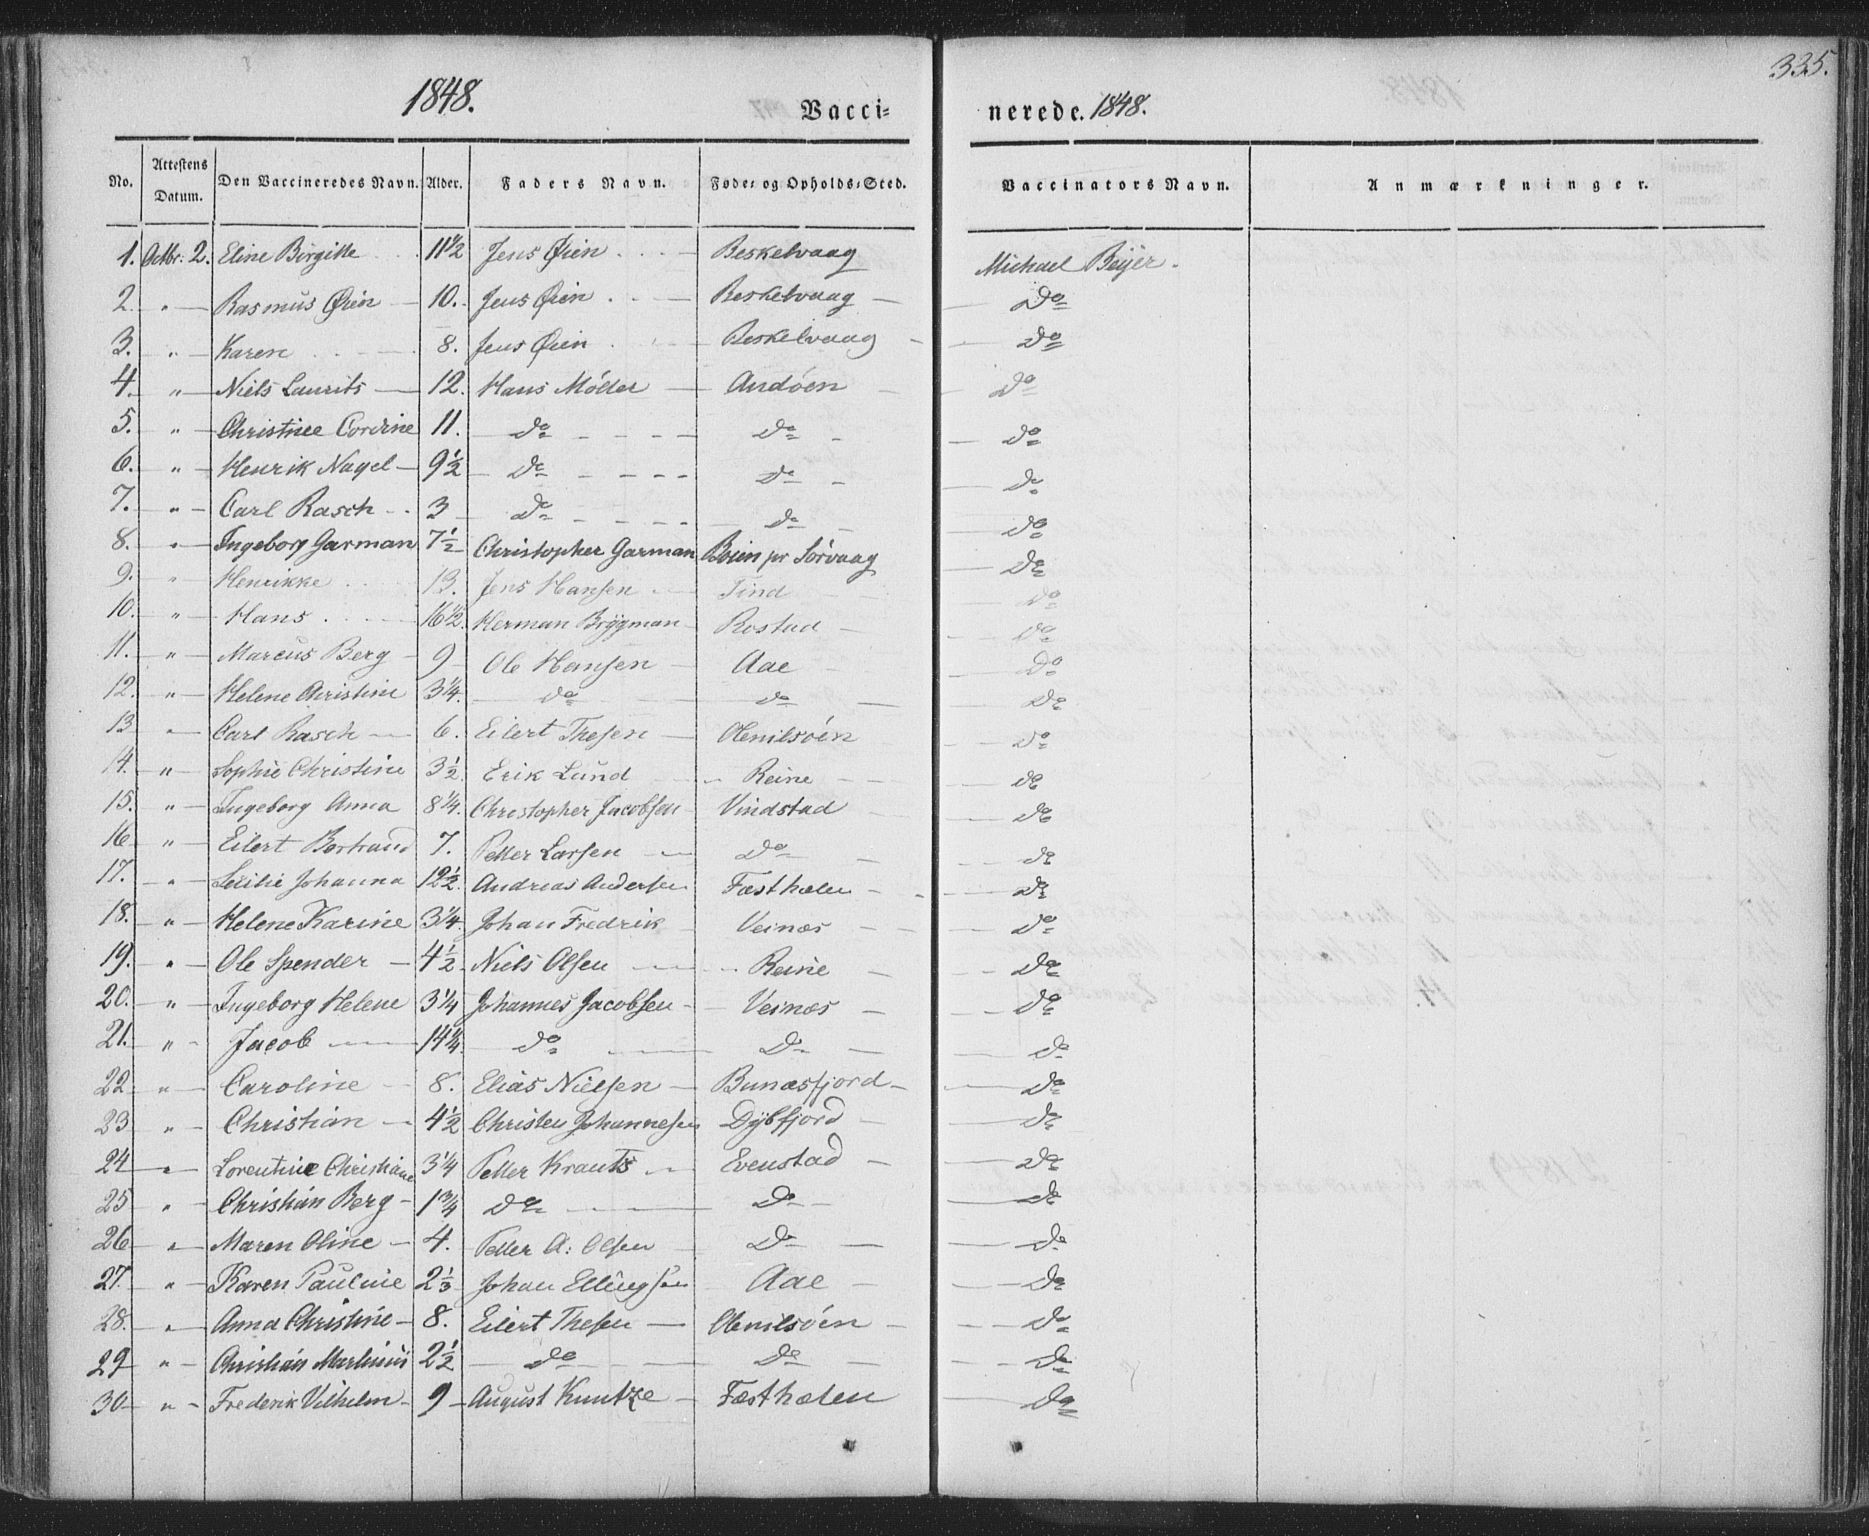 335.
1848. Vacci- nerede. 1848.
No. Attestens Datum. Den Vaccineredes Navn. Alder. Faders Navn. Føde- og Opholds-Sted. Vaccinators Navn. Anmærkninger.
1. Octbr: 2. Eline Birgitte 11 1/2 Jens Øien Beskelvaag Michael Beÿer.
2. " Rasmus Øien 10. Jens Øien Beskelvaag Do
3. " Karen 8. Jens Øien Beskelvaag Do
4. " Niels Laurits 12. Hans Möller Andöen Do
5. " Christine Cordine 11. Do Do Do
6. " Henrik Nagel 9 1/2 Do Do Do
7. " Carl Rasch 3 Do Do Do
8. " Ingeborg Garman 7 1/2 Christopher Garman Boien pr Sörvaag Do
9. " Henrikke 13. Jens Hansen Tind Do
10. " Hans 16 1/2 Herman Brÿgman Rostad Do
11. " Marcus Berg 9 Ole Hansen Aae Do
12. " Helene Christine 3 1/4. Do Do Do
13 " Carl Rasch 6. Eilert Thesen Olenilsöen Do
14. " Sophie Christine 3 1/2. Erik Lund Reine Do
15. " Ingeborg Anna 8 1/4. Christopher Jacobsen Vindstad Do
16 " Eilert Bertrand 7. Petter Larsen Do Do
17. " Cecilie Johanna 12 1/2. Andreas Andersen Fæsthælen Do
18. " Helene Karine 3 1/4. Johan Fredrik Veinæs Do
19. " Ole Spender 4 1/2 Niels Olsen Reine Do
20. " Ingeborg Helene 3 1/4 Johannes Jacobsen Veinæs Do
21. " Jacob 14 1/4 Do Do Do
22 " Caroline 8. Elias Nielsen Bunæsfjord Do
23 " Christian 4 1/2 Christen Johannesen Dÿbfjord Do
24 " Lorentine Christiane 3 1/4 Petter Krauts Evenstad Do
25 " Christian Berg 1 3/4 Do Do Do
26 " Maren Oline 4. Petter A: Olsen Do Do
27. " Karen Pauline 2 1/3 Johan Ellingsen Aae Do
28. " Anna Christine 8. Eilert Thesen Olenilsöen Do
29 " Christian Martinus 2 1/2 Do Do Do
30 " Frederik Vilhelm 9 August Kuntze Fæsthælen Do